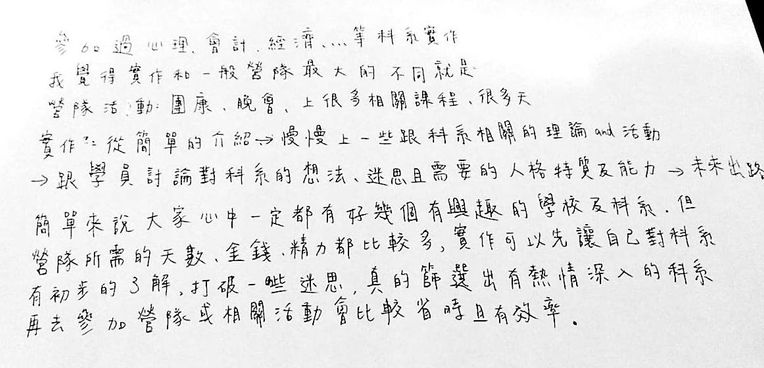 參加過心理、會計、經濟、...等科系實作
我覺得實作和一般營隊最大的不同就是
營隊活動:團康、晚會、上很多相關課程、很多天
實作:從簡單的介紹→慢慢上一些跟科系相關的理論and活動
→跟學員討論對科系的想法、迷思且需要的人格特質及能力→未來出路
簡單來說大家心中一定都有好幾個有興趣的學校及科系.但
營隊所需的天數、金錢、精力都比較多,實作可以先讓自己對科系
有初步的了解,打破一些迷思,真的篩選出有熱情深入的科系
再去參加營隊或相關活動會比較省時且有效率.